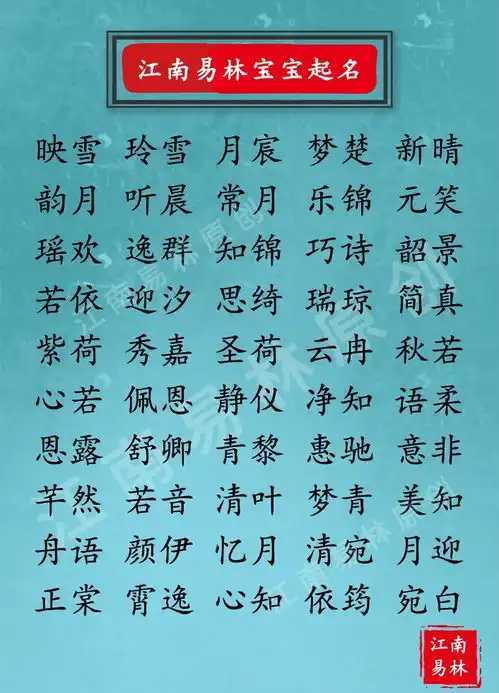 江南易林宝宝起名
映雪 玲雪 月宸 梦楚 新晴
韵月 听晨 常月 乐锦 元笑
瑶欢 逸群 知锦 巧诗 韶景
若依 迎汐 思绮 瑞琼 简真
紫荷 秀嘉 圣荷 云冉 秋若
心若 佩恩 静仪 净知 语柔
恩露 舒卿 青黎 惠驰 意非
芊然 若音 清叶 梦青 美知
舟语 颜伊 忆月 清宛 月迎
正棠 霄逸 心知 依筠 宛白
江南
易林
江南易林原创
江南易林原创
江南易林原创